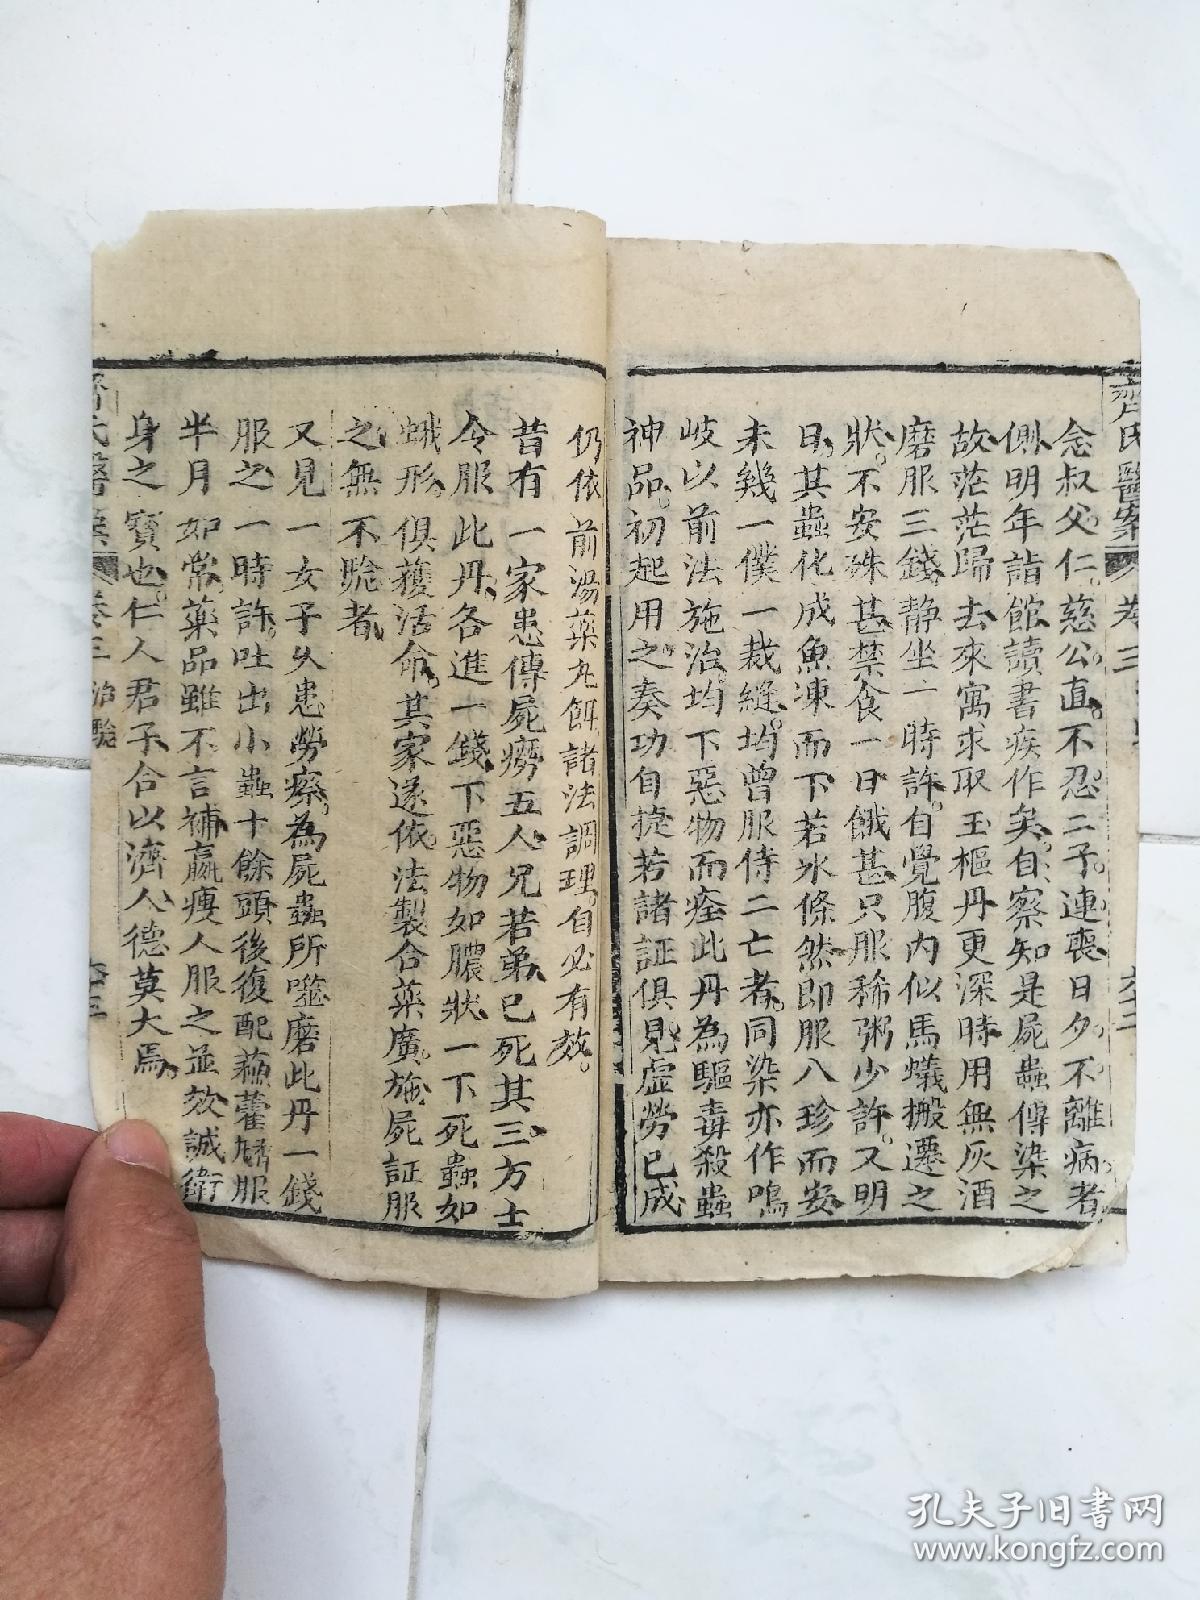 齊氏醫案 卷三
念叔父仁慈公直不忍二子連喪日夕不離病者
側明年詣館讀書疾作矣自察知是屍蟲傳染之
故茫茫歸去來寓求取玉樞丹更深時用無灰酒
磨服三錢静坐一時許自覺腹内似馬蟻搬遷之
狀不安殊甚禁食一日餓甚只服稀粥少許又明
日其蟲化成魚凍而下若氷條然即服八珍而安
未幾一僕一裁縫均曾服侍二亡者同染亦作嗚
岐以前法施治均下惡物而痊此丹為驅毒殺蟲
神品初起用之奏功自捷若諸証俱見虛勞已成
仍依前湯藥丸餌諸法調理自必有效
昔有一家患傳屍癆五人兄若弟已死其三方士
令服此丹各進一錢下惡物如膿狀一下死蟲如
蛾形俱獲活命其家遂依法製合藥廣施屍証服
之無不騐者
又見一女子久患勞瘵為屍蟲所噬磨此丹一錢
服之一時許吐出小蟲十餘頭後復配蘓藿觹服
半月如常藥品雖不言補羸痩人服之並效誠衛
身之寳也仁人君子合以濟人德莫大焉
齊氏醫案 卷三 治騐 六三
孔夫子旧书网
www.kongfz.com